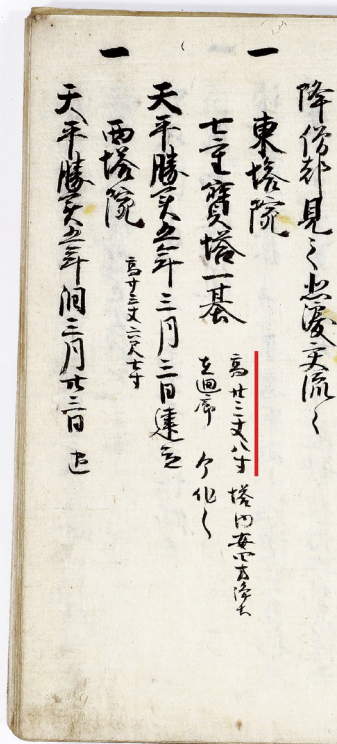 降僧都見之悲涙交流云々
一 東塔院
七重寶塔一基 高廿三丈八寸 塔内安四方浄土
在廻廊
天平勝宝五年三月三日建立
一 西塔院
高廿三丈六尺七寸
天平勝宝五年閏三月廿三日